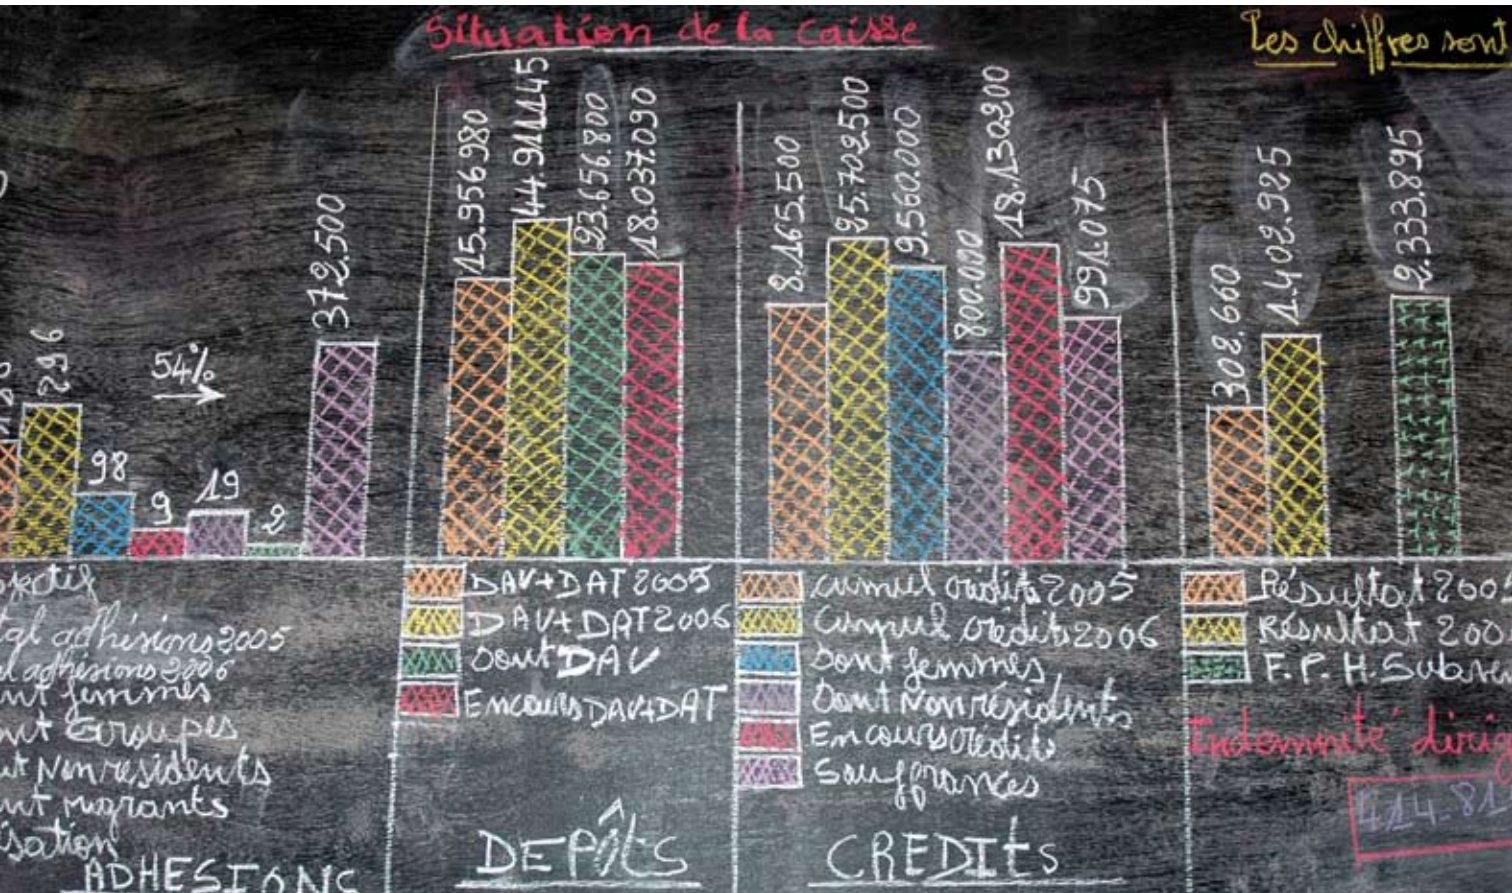 Situation de la caisse
Les chiffres sont
296
98
9
54%
19
2
372.500
15.956.980
44.911.145
23.656.800
18.037.090
8.165.500
25.702.500
9.560.000
800.000
18.130.200
991.075
302.660
1.402.925
2.333.895
adhésions 2005
adhésions 2006
femmes
Groupes
Non residents
migrants
ADHESIONS
DAV+DAT 2005
DAV+DAT 2006
Dont DAV
Encours DAV+DAT
DEPÔtS
cumul crédits 2005
Cumul crédits 2006
Dont femmes
Dont Non résidents
Encours crédits
Souffrances
CREDItS
Résultat 200
Résultat 200
F.P.H. Subve
Indemnité dirig
414.81